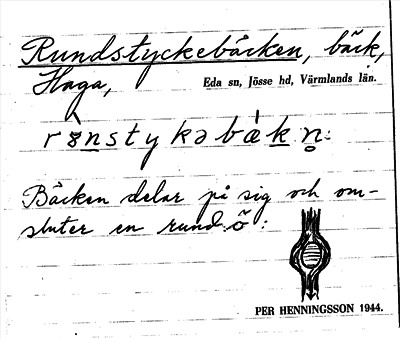 Rundstyckebäcken, bäck,
Haga, Eda sn, Jösse hd, Värmlands län.
Bäcken delar på sig och om-
sluter en rund ö:
PER HENNINGSSON 1944.